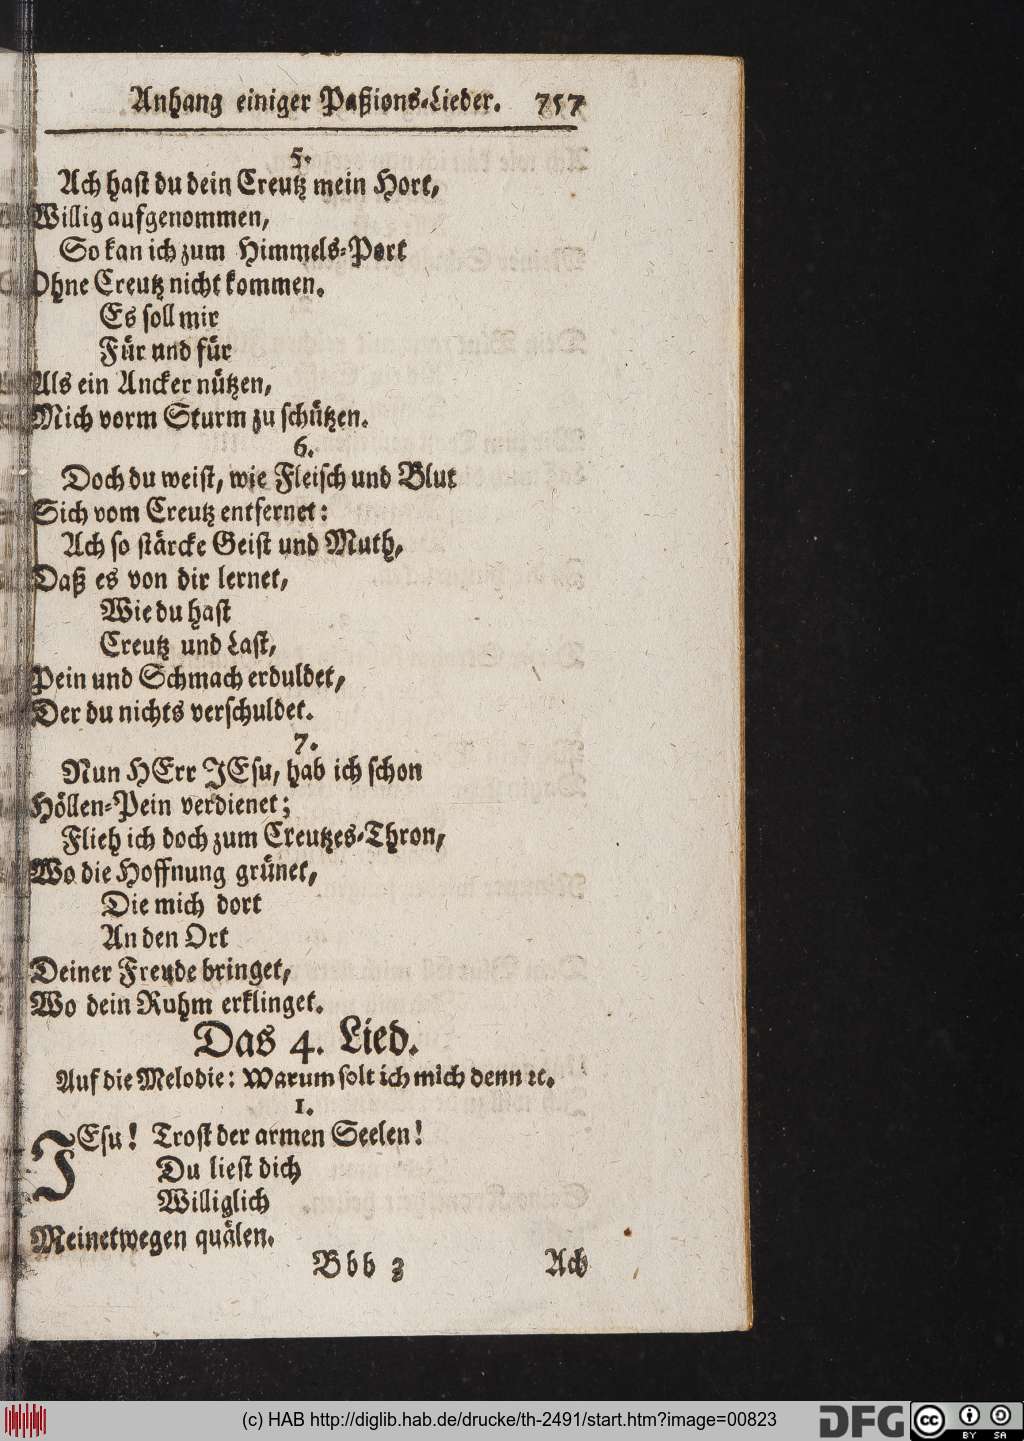 Anhang einiger Paßions-Lieder. 757
5.
Ach hast du dein Creutz mein Hort,
Willig aufgenommen,
So kan ich zum Himmels-Port
Ohne Creutz nicht kommen.
Es soll mir
Für und für
Als ein Ancker nützen,
Mich vorm Sturm zu schützen.
6.
Doch du weist, wie Fleisch und Blut
Sich vom Creutz entfernet:
Ach so stärcke Geist und Muth,
Daß es von dir lernet,
Wie du hast
Creutz und Last,
Pein und Schmach erduldet,
Der du nichts verschuldet.
7.
Nun HErr JEsu, hab ich schon
Höllen-Pein verdienet;
Flieh ich doch zum Creutzes-Thron,
Wo die Hoffnung grünet,
Die mich dort
An den Ort
Deiner Freude bringet,
Wo dein Ruhm erklinget.
Das 4. Lied.
Auf die Melodie: Warum solt ich mich denn ꝛc.
1.
JEsu! Trost der armen Seelen!
Du liest dich
Williglich
Meinetwegen quälen.
Bbb 3 Ach
(c) HAB http://diglib.hab.de/drucke/th-2491/start.htm?image=00823
DFG
cc BY SA